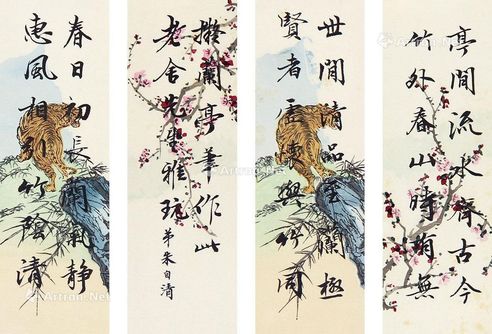 亭間流水齊古今
竹外春山時有無
世間清品至蘭極
賢者虛懷與竹同
蘭亭書作此
老舍先生雅玩
弟朱自清
春日初長氣靜
惠風相引竹陰清
Artron.Net
Artron.Net
Artron.Net
Artron.Net